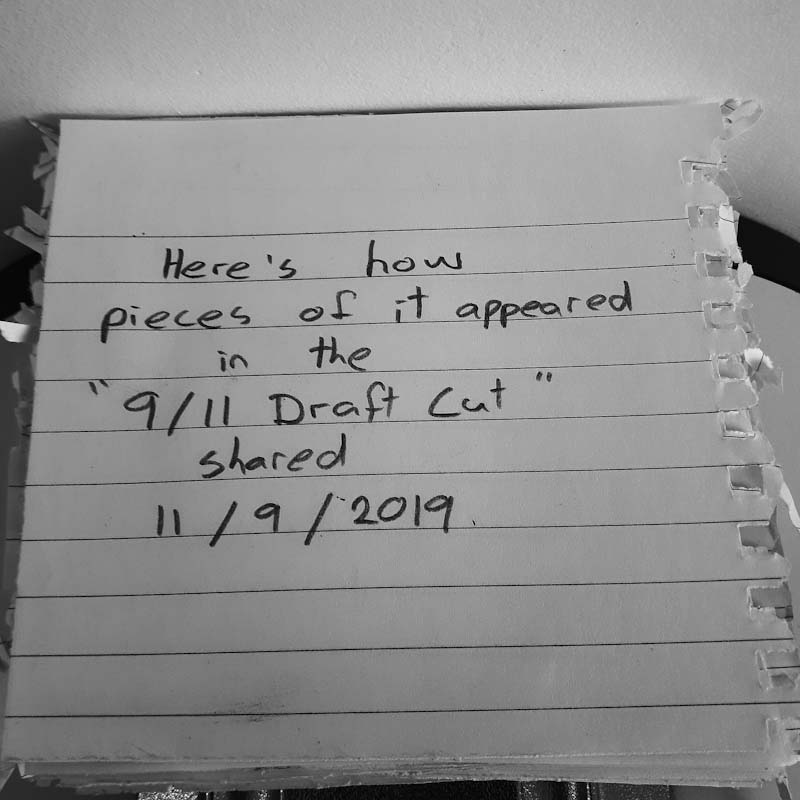 Here's how
pieces of it appeared
in the
"9/11 Draft Cut"
shared
11/9/2019.